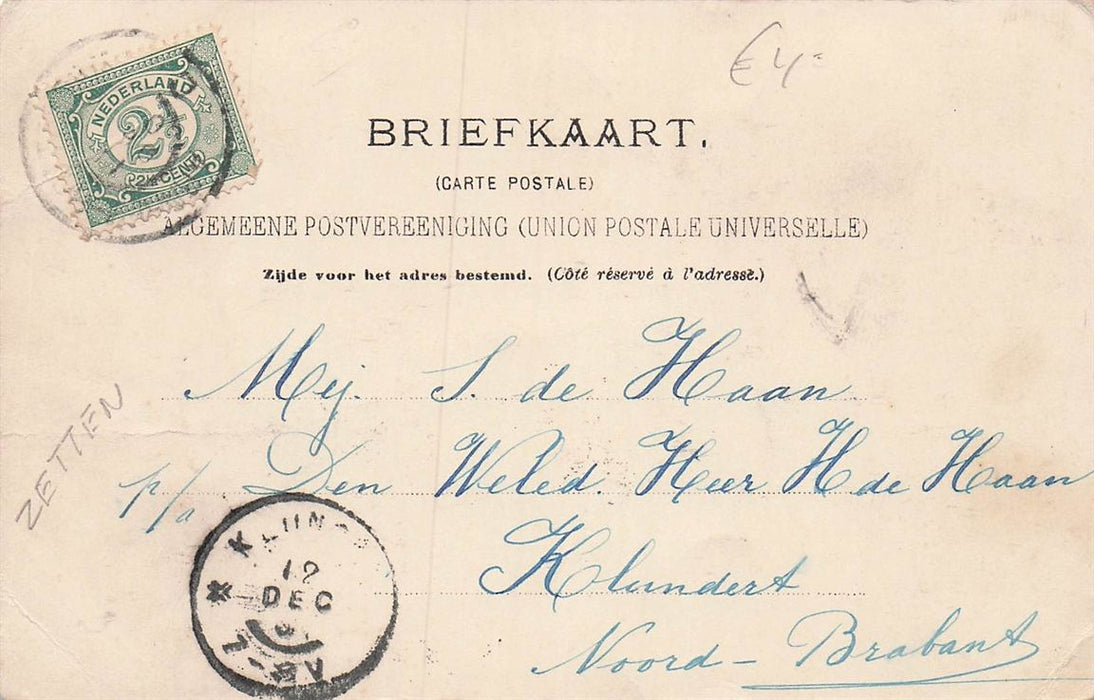 €4,=
NEDERLAND
2½
2½ CENT
BRIEFKAART.
(CARTE POSTALE)
ALGEMEENE POSTVEREENIGING (UNION POSTALE UNIVERSELLE)
Zijde voor het adres bestemd. (Côté réservé à l'adresse.)
Mej. S. de Haan
p/a Den Weled. Heer H de Haan
Klundert
Noord-Brabant
ZETTEN
12
DEC